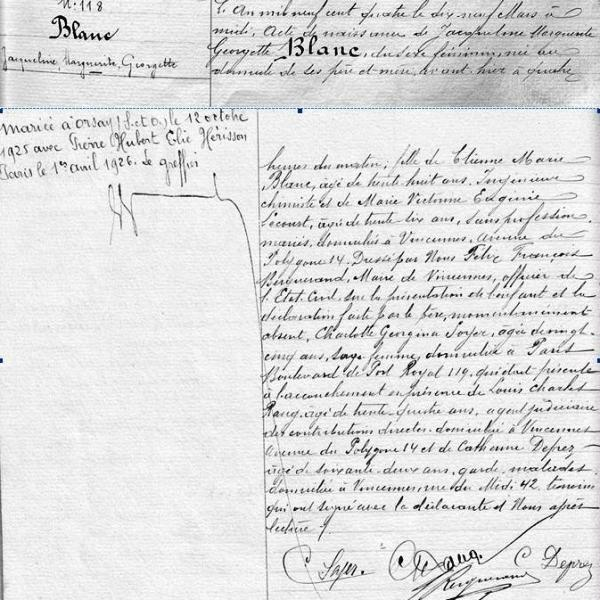 N° 118
Blanc
Jacqueline, Marguerite, Georgette
L'An mil neuf cent quatre le dix neuf Mars à
midi, Acte de naissance de Jacqueline Marguerite
Georgette Blanc, du sexe féminin, née au
domicile de ses père et mère, avant hier à quatre
Mariée à Orsay (S.et O.) le 12 octobre
1925 avec Pierre Hubert Elie Hérisson
Paris le 1er avril 1926. Le greffier
heures du matin; fille de Etienne Marie
Blanc, âgé de trente huit ans, Ingénieur
chimiste et de Marie Victorine Eugénie
Lecourt, âgée de trente six ans, sans profession,
mariés, domiciliés à Vincennes, Avenue du
Polygone 14. Dressé par Nous Félix François
Maire de Vincennes, officier de
l'Etat Civil, sur la présentation de l'enfant et la
déclaration faite par le père, momentanément
absent, Charlotte Georgina Soyer, âgée de vingt-
cinq ans, sage femme, domiciliée à Paris
Boulevard de Port Royal 119, qui était présente
à l'accouchement en présence de Louis Charles
Rang, âgé de trente quatre ans, agent judiciaire
des contributions directes domicilié à Vincennes
Avenue du Polygone 14 et de Catherine Deprez
âgée de soixante deux ans, garde malades
domiciliée à Vincennes, rue du Midi 42, témoins
qui ont signé avec la déclarante et Nous après
lecture.
C Soyer. Ch Rang. C Deprez